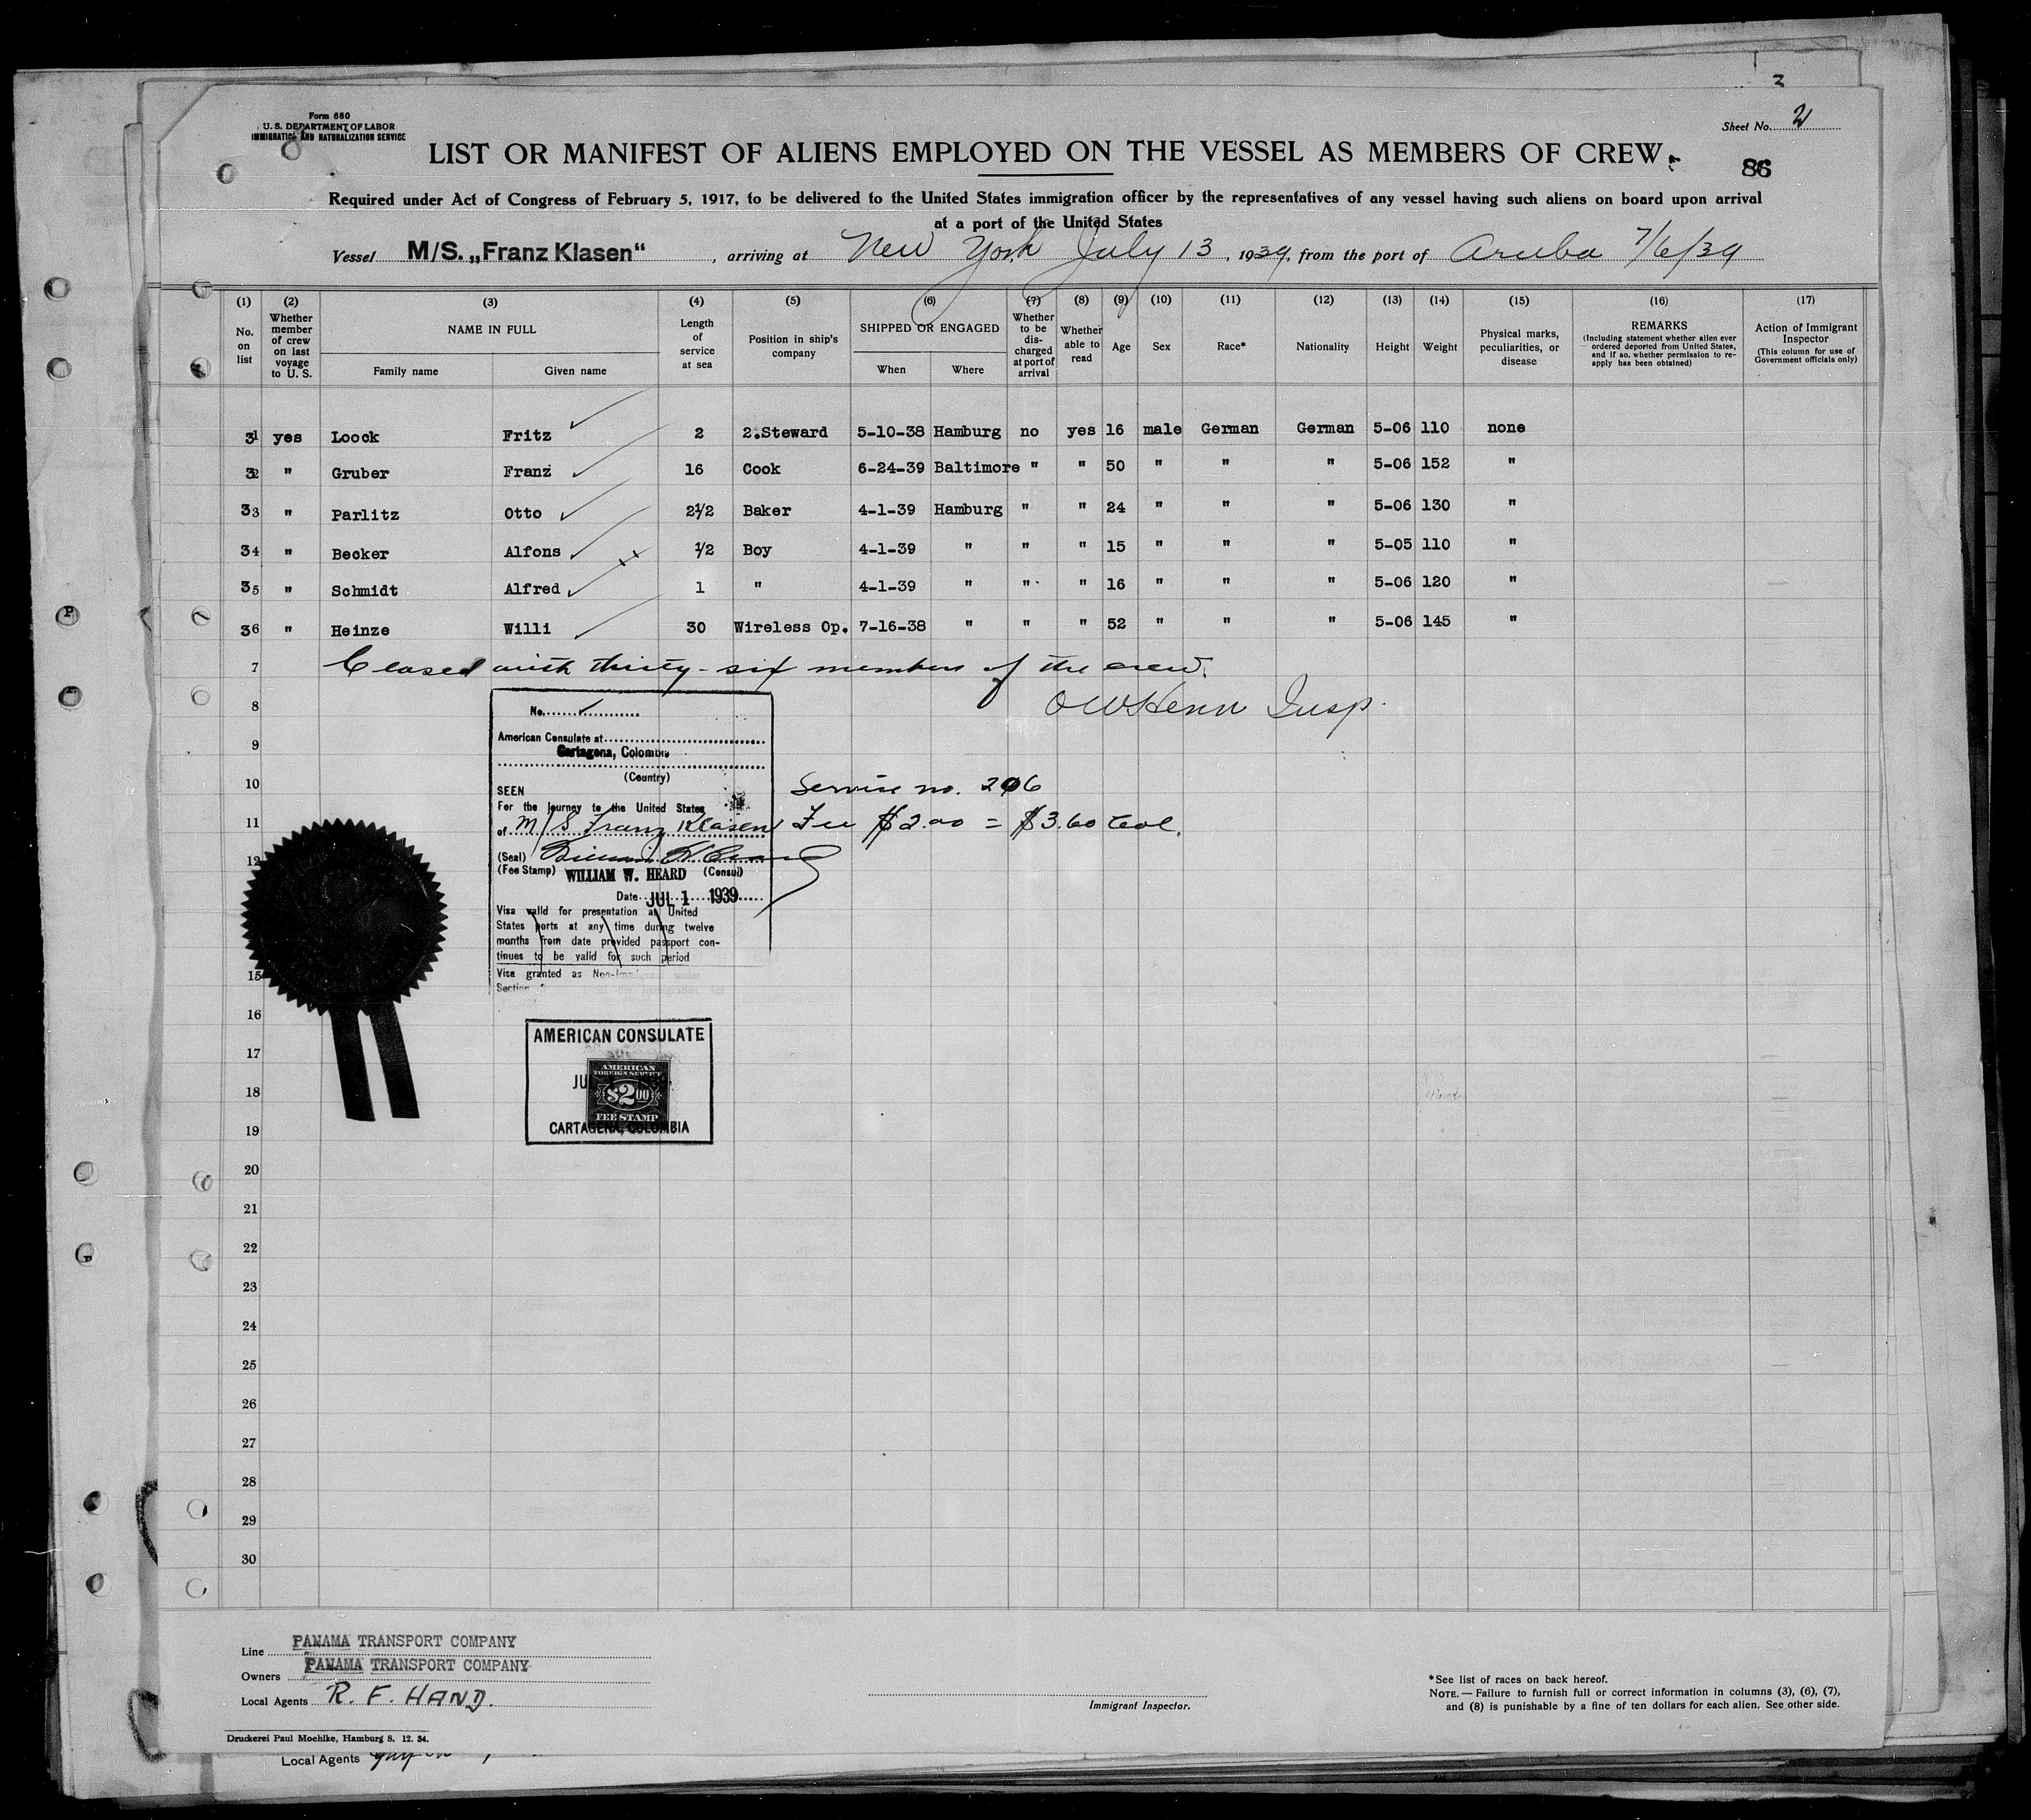 3
Form 680
U. S. DEPARTMENT OF LABOR
IMMIGRATION AND NATURALIZATION SERVICE
Sheet No. 2
LIST OR MANIFEST OF ALIENS EMPLOYED ON THE VESSEL AS MEMBERS OF CREW
86
Required under Act of Congress of February 5, 1917, to be delivered to the United States immigration officer by the representatives of any vessel having such aliens on board upon arrival
at a port of the United States
Vessel M/S. „Franz Klasen“, arriving at New York July 13, 1939, from the port of Aruba 7/6/39
(1) (2) (3) (4) (5) (6) (7) (8) (9) (10) (11) (12) (13) (14) (15) (16) (17)
No. on list
Whether member of crew on last voyage to U. S.
NAME IN FULL
Family name
Given name
Length of service at sea
Position in ship's company
SHIPPED OR ENGAGED
When
Where
Whether to be discharged at port of arrival
Whether able to read
Age
Sex
Race*
Nationality
Height
Weight
Physical marks, peculiarities, or disease
REMARKS
(Including statement whether alien ever ordered deported from United States, and if so, whether permission to re-apply has been obtained)
Action of Immigrant Inspector
(This column for use of Government officials only)
31 yes Loock Fritz 2 2.Steward 5-10-38 Hamburg no yes 16 male German German 5-06 110 none
32 " Gruber Franz 16 Cook 6-24-39 Baltimore " " 50 " " " 5-06 152 "
33 " Parlitz Otto 2½ Baker 4-1-39 Hamburg " " 24 " " " 5-06 130 "
34 " Becker Alfons ½ Boy 4-1-39 " " " 15 " " " 5-05 110 "
35 " Schmidt Alfred 1 " 4-1-39 " " " 16 " " " 5-06 120 "
36 " Heinze Willi 30 Wireless Op. 7-16-38 " " " 52 " " " 5-06 145 "
7 Closed with thirty-six members of the crew.
8 OWHenn Insp.
No.
9
American Consulate at
Cartagena, Colombia
(Country)
10
SEEN
Service no. 206
For the journey to the United States
11
of M/S Franz Klasen Fee $2.00 = $3.60 Col.
12
(Seal)
(Fee Stamp) WILLIAM W. HEARD (Consul)
Date JUL 1 1939
Visa valid for presentation at United
States ports at any time during twelve
months from date provided passport con-
tinues to be valid for such period
15
Visa granted as Non-Immi
Section
16
AMERICAN CONSULATE
17
AMERICAN
FOREIGN SERVICE
18
$2.00
FEE STAMP
CARTAGENA, COLOMBIA
19
20
21
22
23
24
25
26
27
28
29
30
Line PANAMA TRANSPORT COMPANY
Owners PANAMA TRANSPORT COMPANY
Local Agents R. F. HAND.
Immigrant Inspector.
*See list of races on back hereof.
NOTE.—Failure to furnish full or correct information in columns (3), (6), (7),
and (8) is punishable by a fine of ten dollars for each alien. See other side.
Druckerei Paul Moehlke, Hamburg 8. 12. 34.
Local Agents